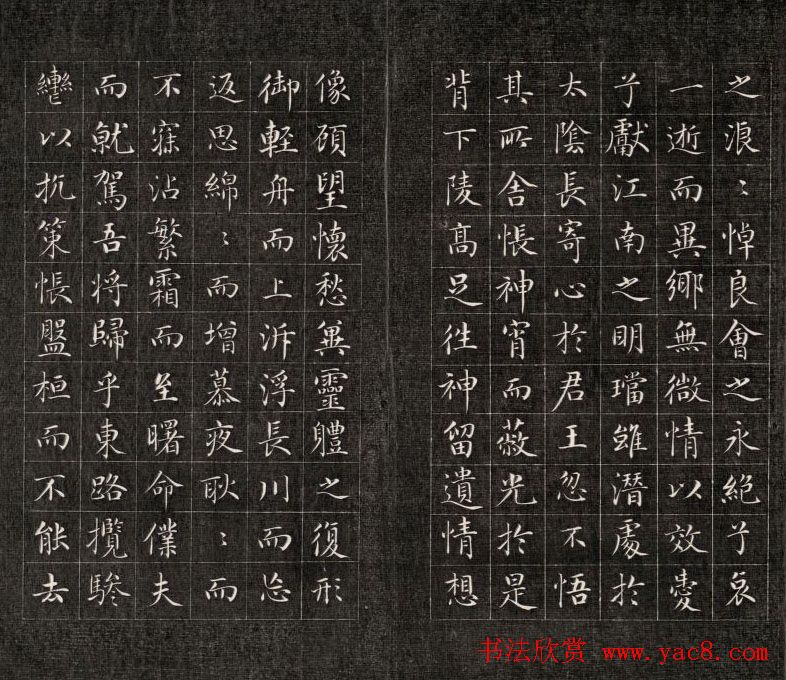 之浪〻悼良會之永絕兮哀
一逝而異鄉無微情以效愛
兮獻江南之明璫雖潛處於
太陰長寄心於君王忽不悟
其所舍悵神宵而蔽光於是
背下陵高足往神留遺情想
像顧望懷愁冀靈軆之復形
御輕舟而上泝浮長川而忘
返思綿〻而增慕夜耿〻而
不寐沾繁霜而至曙命僕夫
而就駕吾將歸乎東路攬驂
轡以抗策悵盤桓而不能去
书法欣赏 www.yac8.com